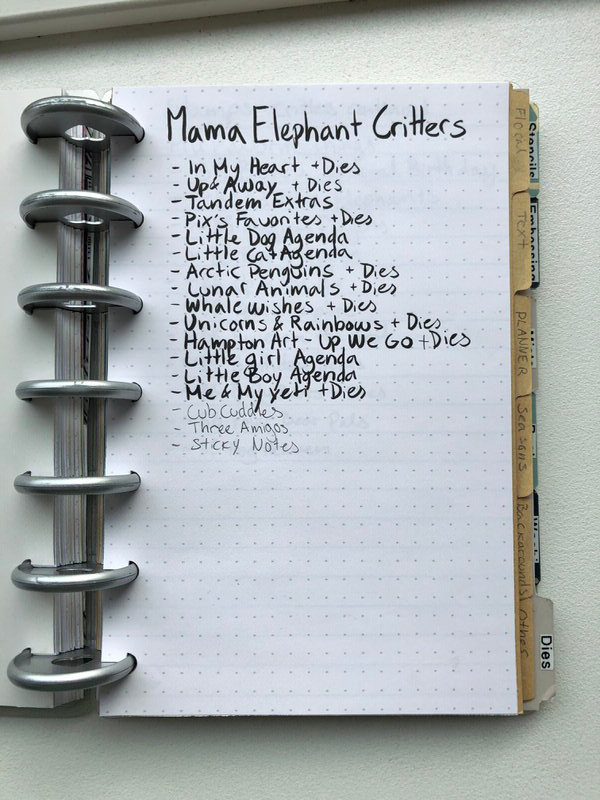 Mama Elephant Critters
- In My Heart + Dies
- Up & Away + Dies
- Tandem Extras
- Pix's Favorites + Dies
- Little Dog Agenda
- Little Cat Agenda
- Arctic Penguins + Dies
- Lunar Animals + Dies
- Whale Wishes + Dies
- Unicorns & Rainbows + Dies
- Hampton Art - Up We Go + Dies
- Little girl Agenda
- Little Boy Agenda
- Me & My Yeti + Dies
- Cub Cuddles
- Three Amigos
- Sticky Notes
Floral
Stencils
TEXT
Embossing
PLANNER
Seasons
Backgrounds
Other
Dies